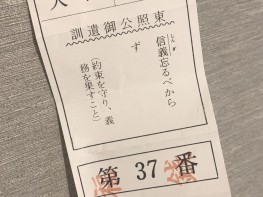 東照公御遺訓
信義忘るべから
ず
(約束を守り、義
務を果すこと)
第 37 番